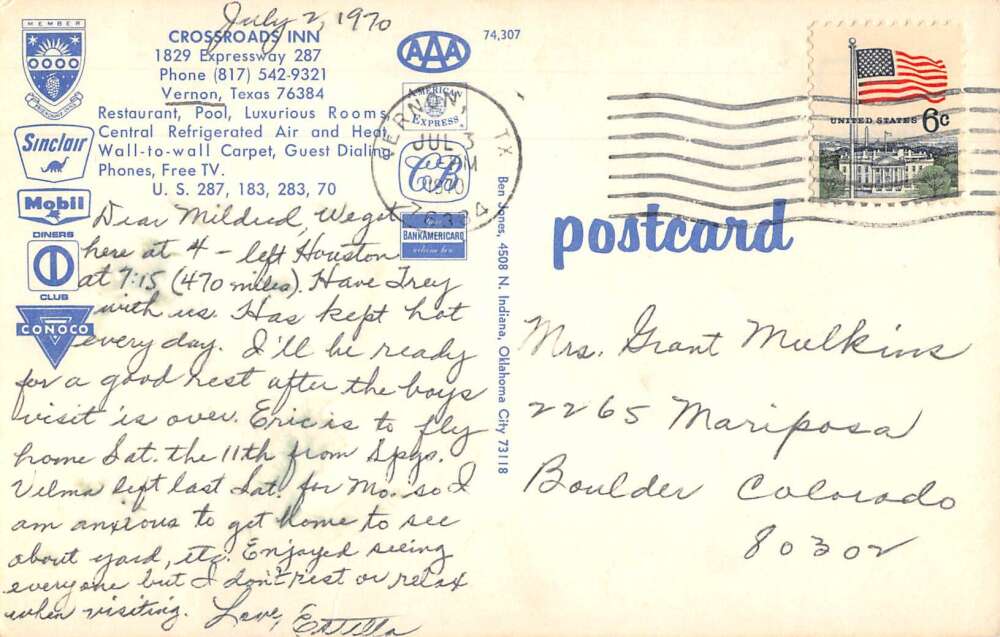 July 2, 1970
MEMBER
CROSSROADS INN
1829 Expressway 287
Phone (817) 542-9321
Vernon, Texas 76384
Restaurant, Pool, Luxurious Rooms
Central Refrigerated Air and Heat
Wall-to-wall Carpet, Guest Dialing
Phones, Free TV.
U. S. 287, 183, 283, 70
Sinclair
Mobil
DINERS
CLUB
CONOCO
AAA
AMERICAN
EXPRESS
CB
BANKAMERICARD
welcome here
74,307
VERNON, TX
JUL 3
PM
1970
76384
UNITED STATES 6c
Dear Mildred, We got
here at 4 – left Houston
at 7:15 (470 miles). Have Trey
with us. Has kept hot
every day. I'll be ready
for a good rest after the boys
visit is over. Eric is to fly
home Sat. the 11th from Spgs.
Velma left last Sat. for Mo. so I
am anxious to get home to see
about yard, etc. Enjoyed seeing
everyone but I don't rest or relax
when visiting. Love, Estella
Ben Jones, 4508 N. Indiana, Oklahoma City 73118
postcard
Mrs. Grant Mulkins
2265 Mariposa
Boulder Colorado
80302